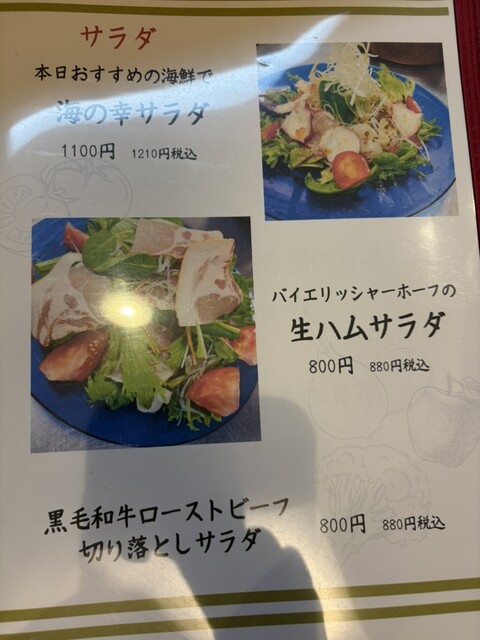 サラダ
本日おすすめの海鮮で
海の幸サラダ
1100円 1210円税込
バイエリッシャーホーフの
生ハムサラダ
800円 880円税込
黒毛和牛ローストビーフ
切り落としサラダ
800円 880円税込